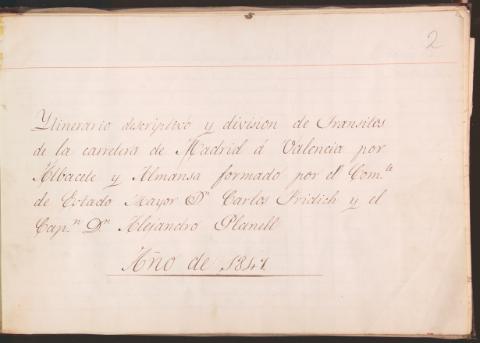 2
Ytinerario descriptivo y division de Transitos
de la carretera de Madrid á Valencia por
Albacete y Almansa formado por el Com.te
de Estado Mayor D.n Carlos Fridich y el
Cap.n D.n Alejandro Planell
Año de 1847.